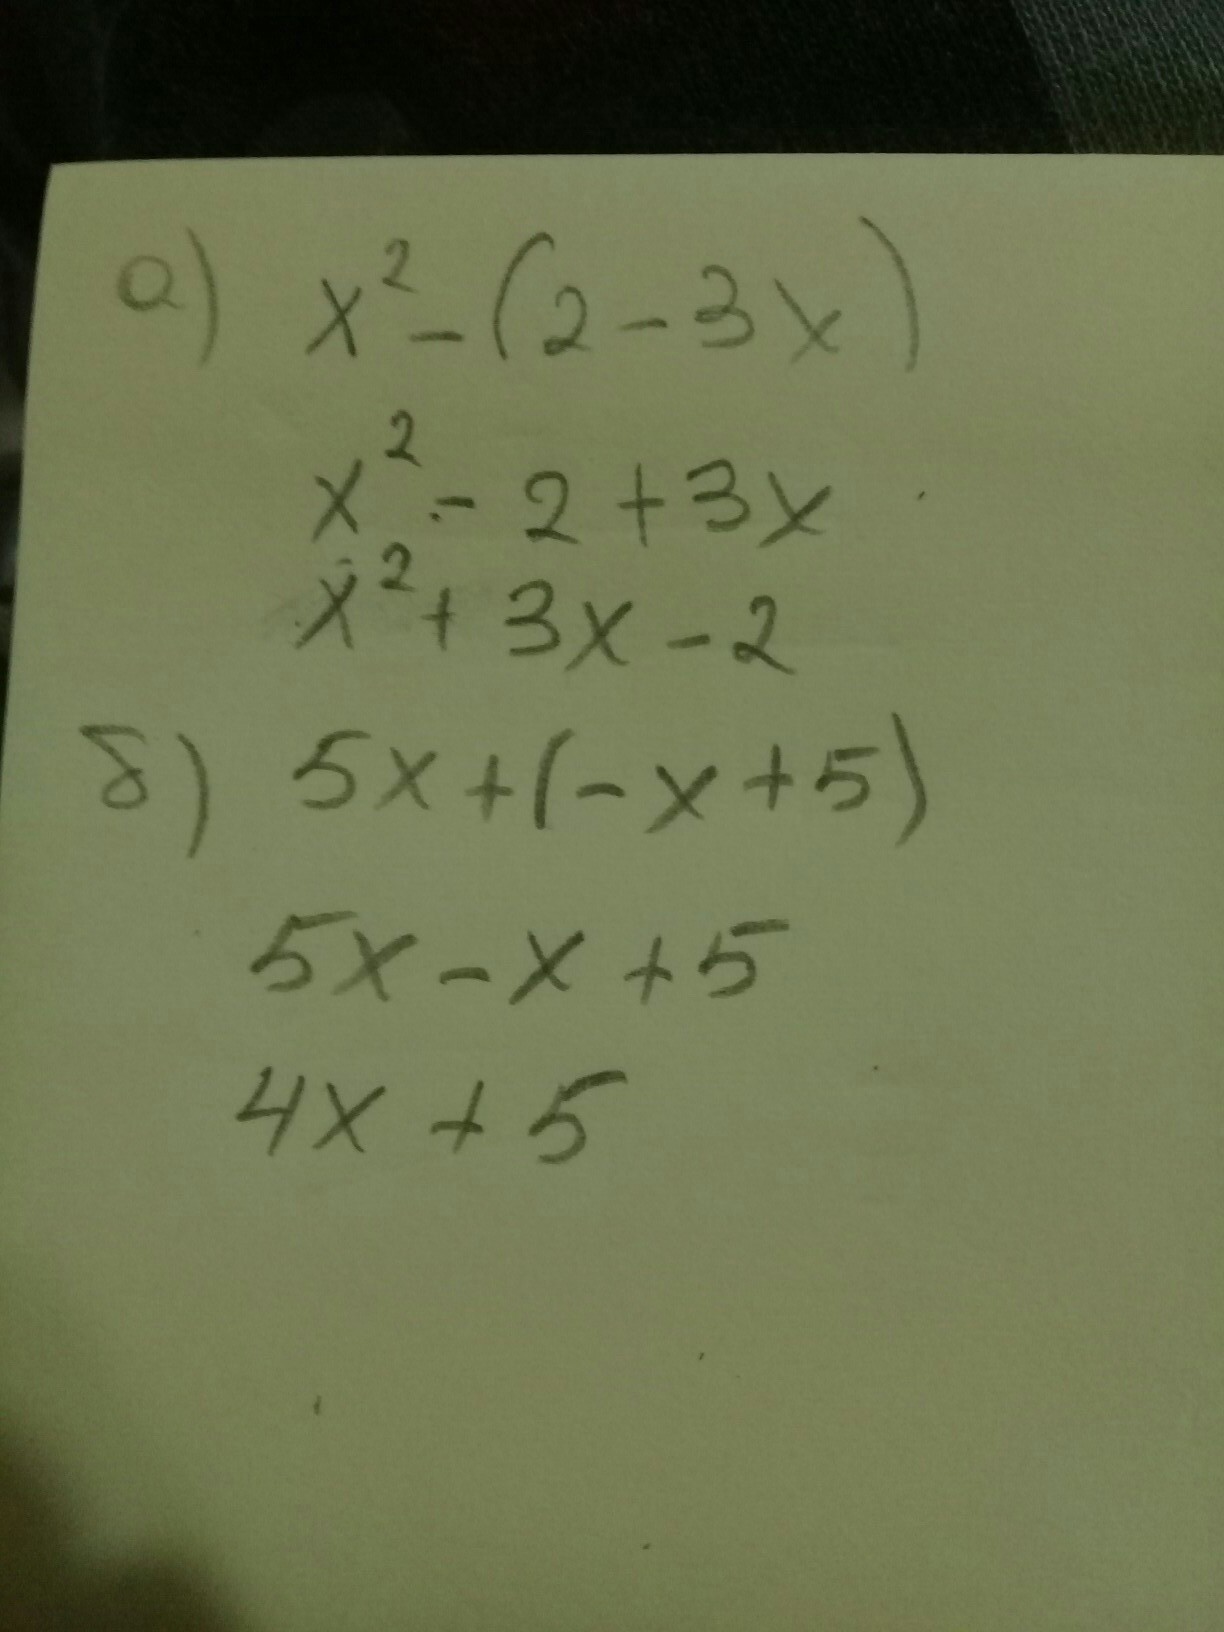 а) x² - (2 - 3x)
x² - 2 + 3x
x² + 3x - 2
б) 5x + (-x + 5)
5x - x + 5
4x + 5